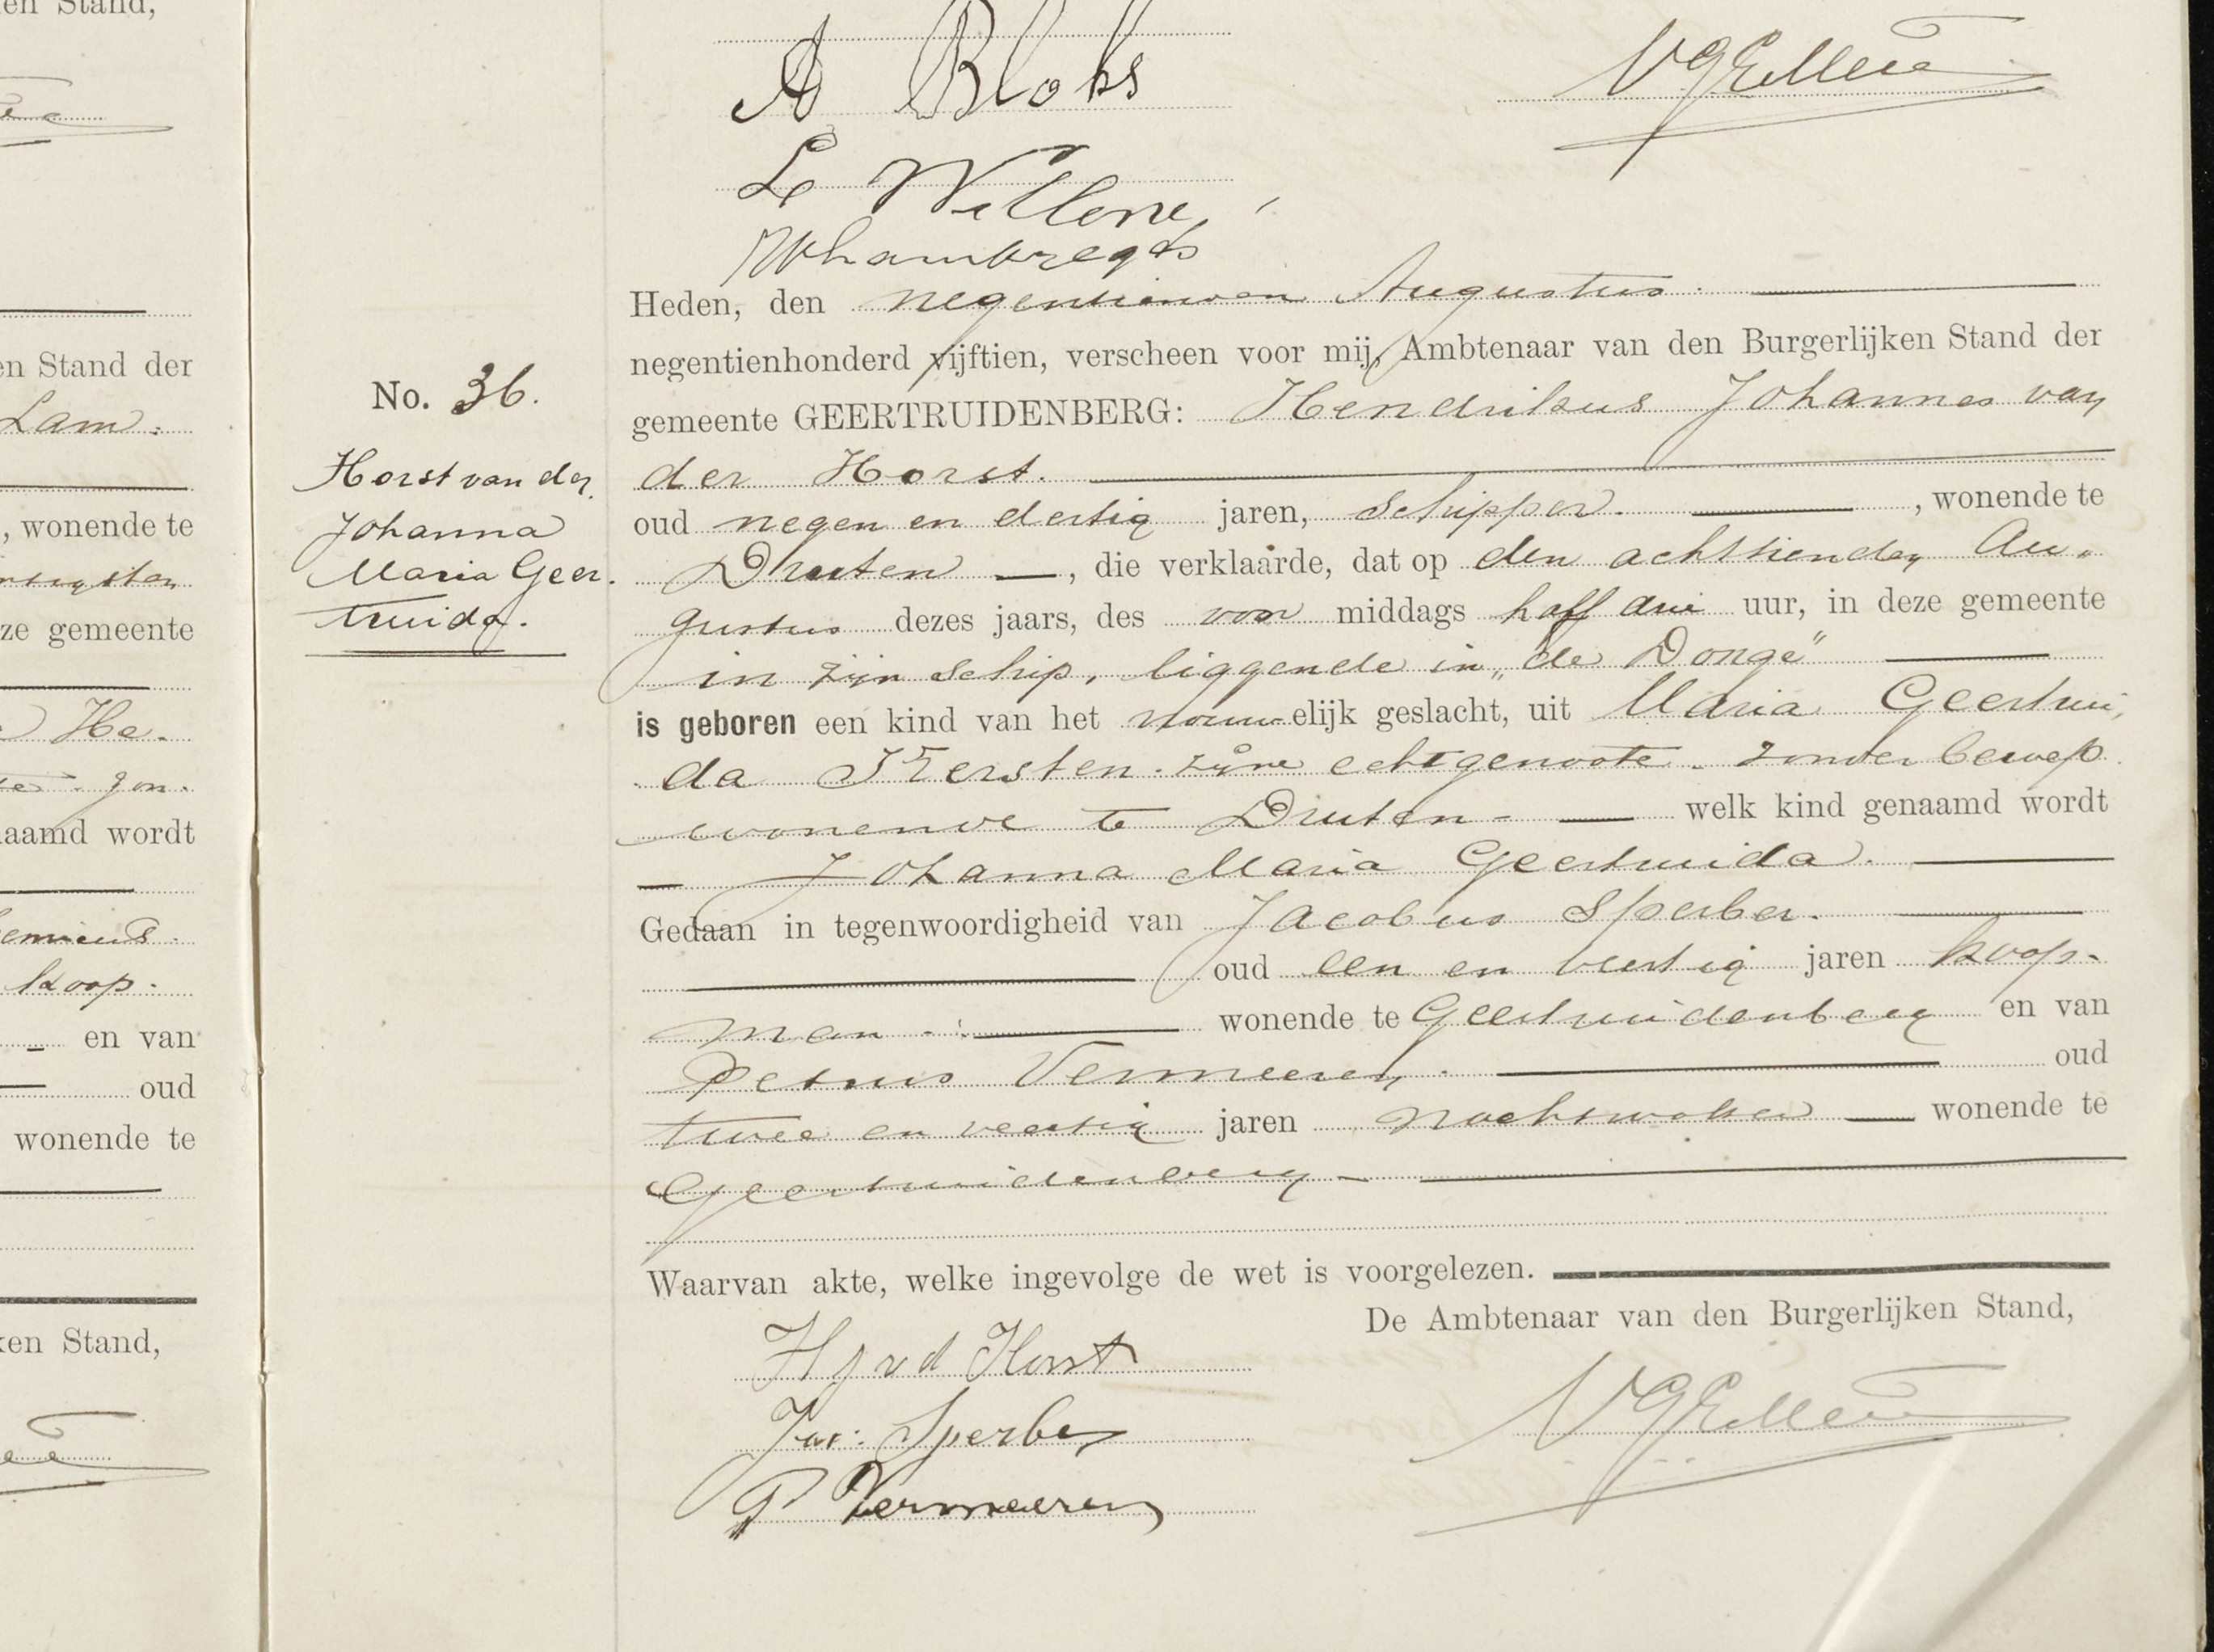 en Stand,
A Bloks
VGEllen
Le Willene,
Whambregts
Heden, den negentienden Augustus.
negentienhonderd vijftien, verscheen voor mij, Ambtenaar van den Burgerlijken Stand der
No. 36.
gemeente GEERTRUIDENBERG: Hendrikus Johannes van
Horst van der
der Horst.
oud negen en dertig jaren, schipper. , wonende te
Johanna
Maria Geer.
Druten , die verklaarde, dat op den achttienden Au.
truida.
gustus dezes jaars, des voor middags half drie uur, in deze gemeente
in zijn schip, liggende in "de Donge"
is geboren een kind van het vrouwelijk geslacht, uit Maria Geertrui,
da Kersten. zijne echtgenoote. zonder beroep.
wonende te Druten - welk kind genaamd wordt
Johanna Maria Geertruida.
Gedaan in tegenwoordigheid van Jacobus Sperber.
oud een en veertig jaren koop-
man. wonende te Geertruidenberg en van
Petrus Vermeeren. oud
twee en veertig jaren nachtwaker wonende te
Geertruidenberg -
Waarvan akte, welke ingevolge de wet is voorgelezen.
De Ambtenaar van den Burgerlijken Stand,
HJ vd Horst
Jac: Sperber
P Vermeeren
VGEllen
en Stand der
Lam.
, wonende te
ze gemeente
He.
zon.
aamd wordt
koop.
en van
oud
wonende te
ken Stand,